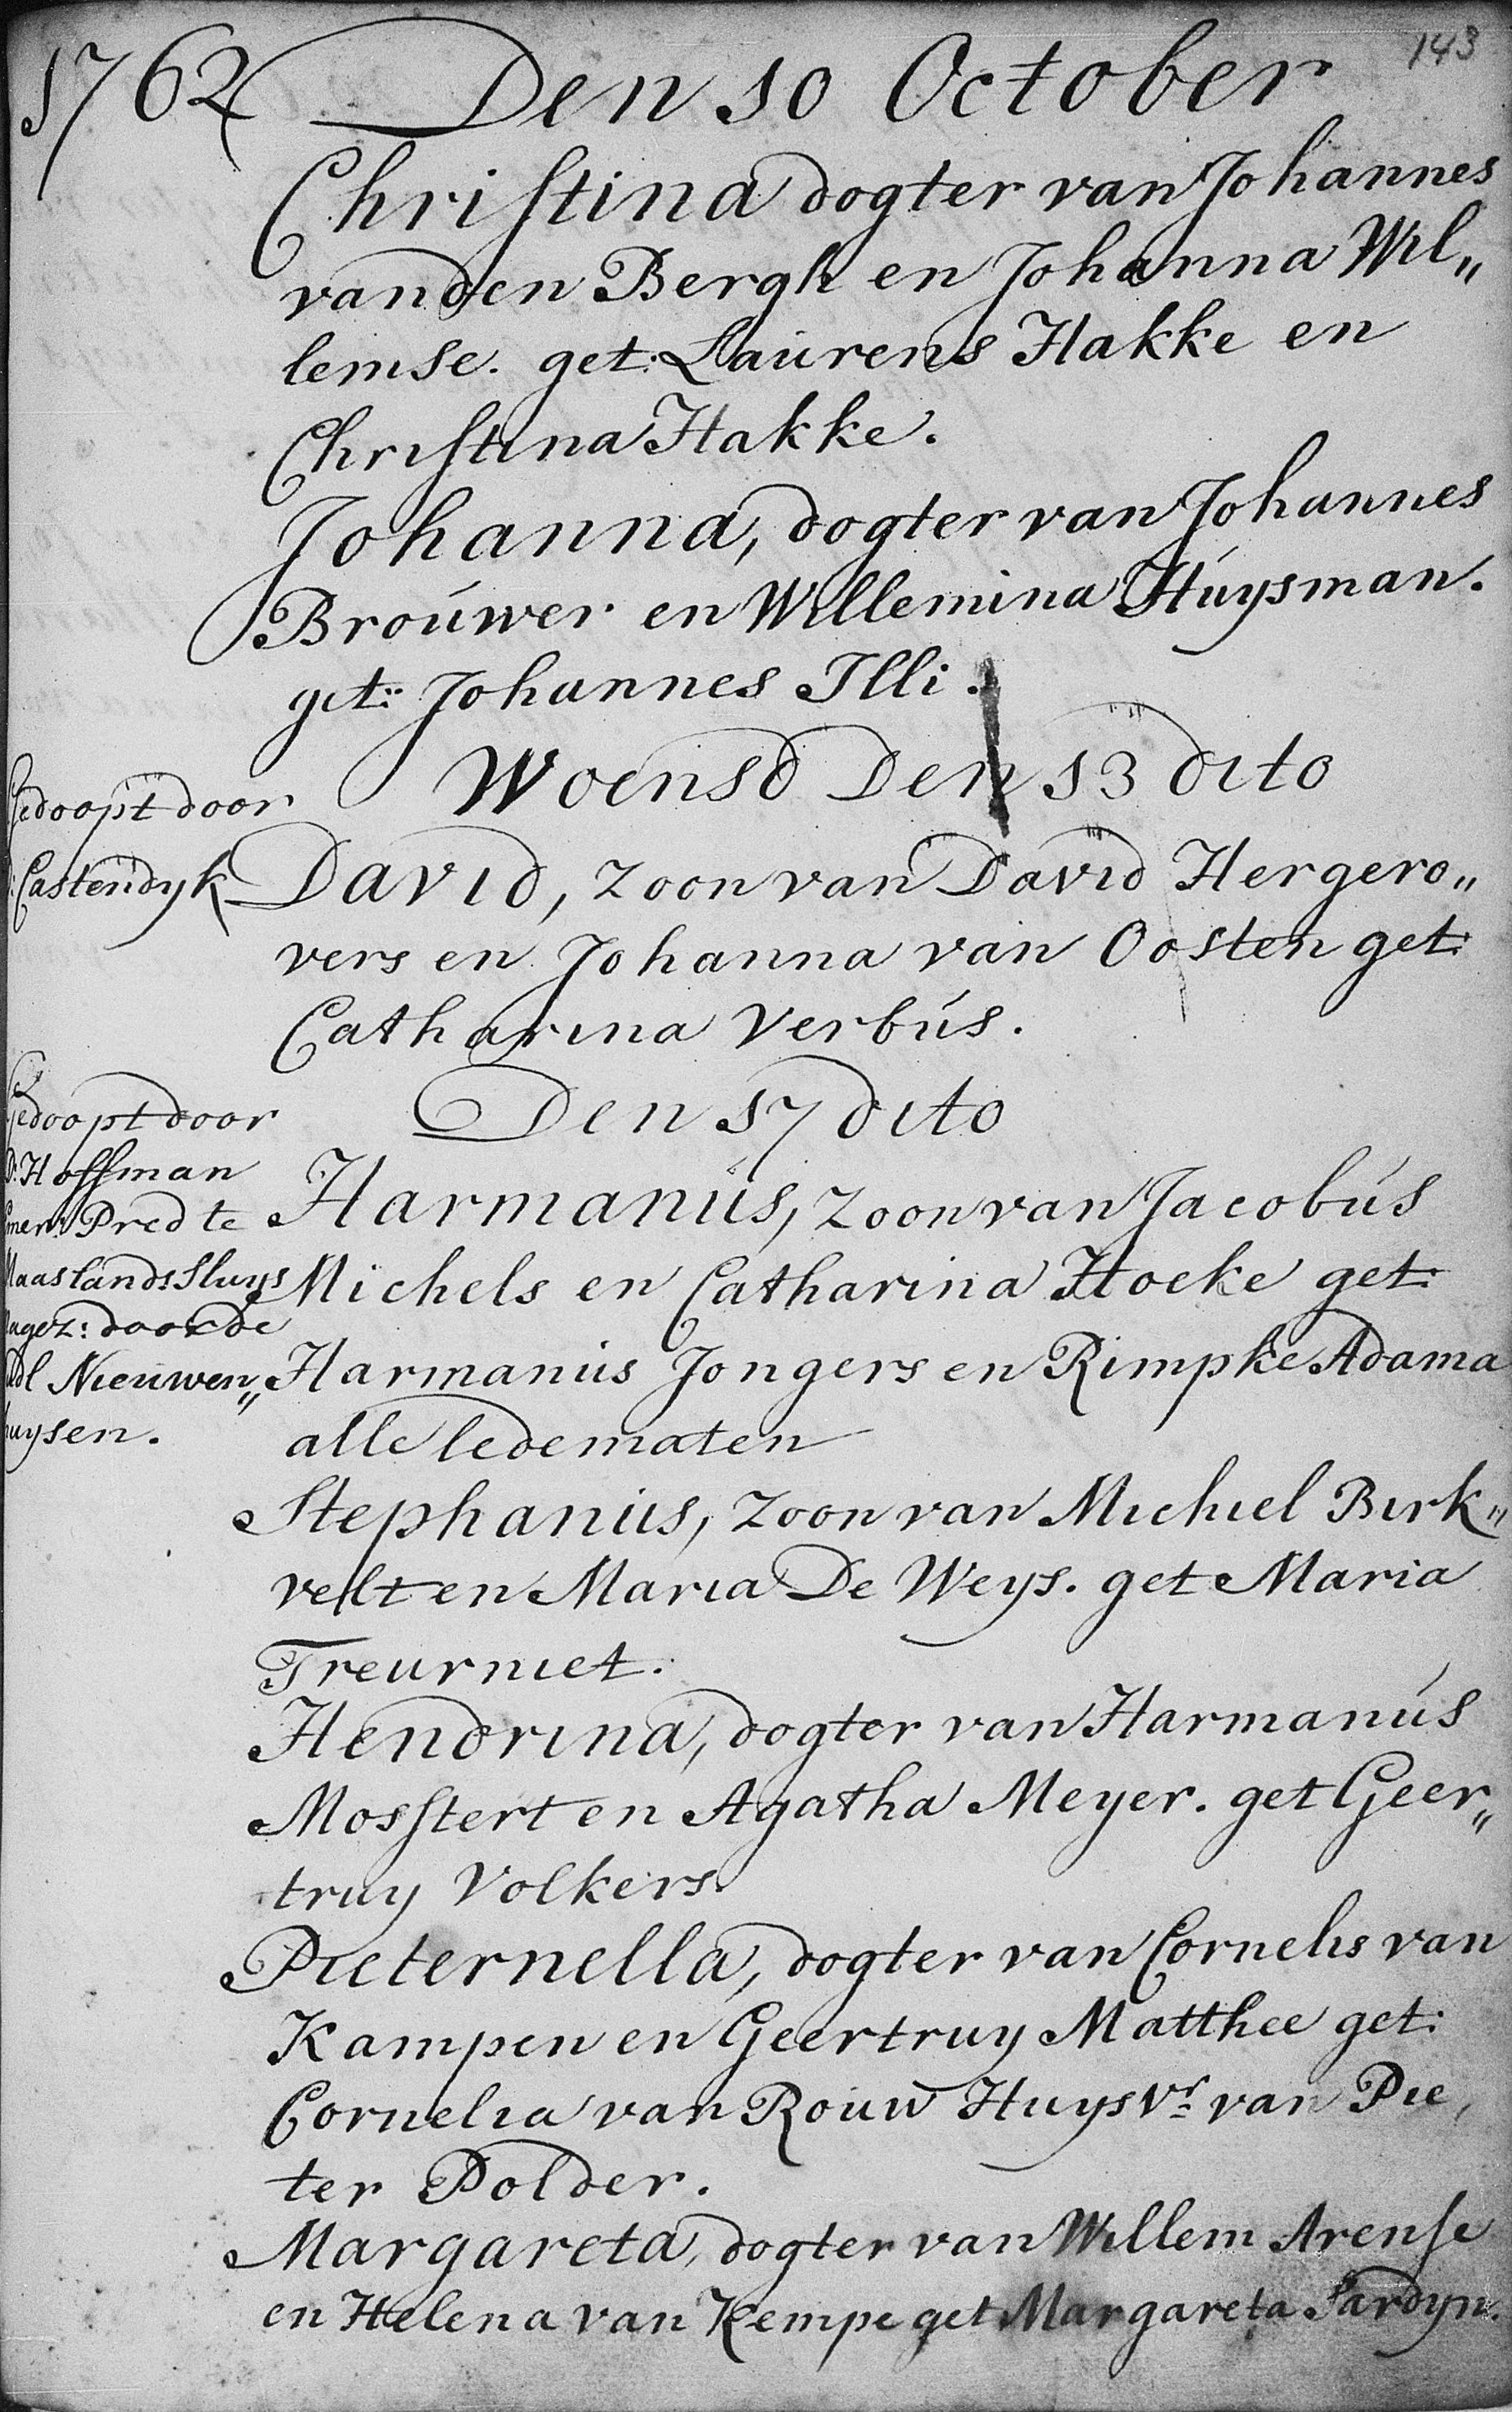 143
1762 Den 10 October
Christina dogter van Johannes
vanden Bergh en Johanna Wil„
lemse. get: Laurens Hakke en
Christina Hakke.
Johanna, dogter van Johannes
Broúwer en Willemina Húysman.
get: Johannes Illi.
Woensd Den 13 dito
Gedoopt door
D: Castendyk
David, zoon van David Hergero„
vers en Johanna van Oosten get:
Catharina Verbús.
Den 17 dito
Gedoopt door
D: Hoffman
Emer: Pred te
Maaslandssluys
door de
Nieuwen„
huysen.
Harmanús, zoon van Jacobús
Michels en Catharina Hoeke get:
Harmanús Jongers en Rimpke Adama
alle ledematen
Stephanús, zoon van Michiel Birk„
velt en Maria De Weys. get Maria
Treurniet.
Hendrina, dogter van Harmanús
Mosstert en Agatha Meyer. get Geer„
truy Volkers.
Pieternella, dogter van Cornelis van
Kampen en Geertruy Matthee get:
Cornelia van Rouw Huysvr van Pie„
ter Polder.
Margareta, dogter van Willem Arense
en Helena van Kempe get Margareta Sardyn.